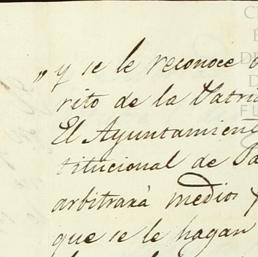 „ y se le reconoce
rito de la Patri
El Ayuntamien
titucional de
arbitrará medios y
que se le hagan